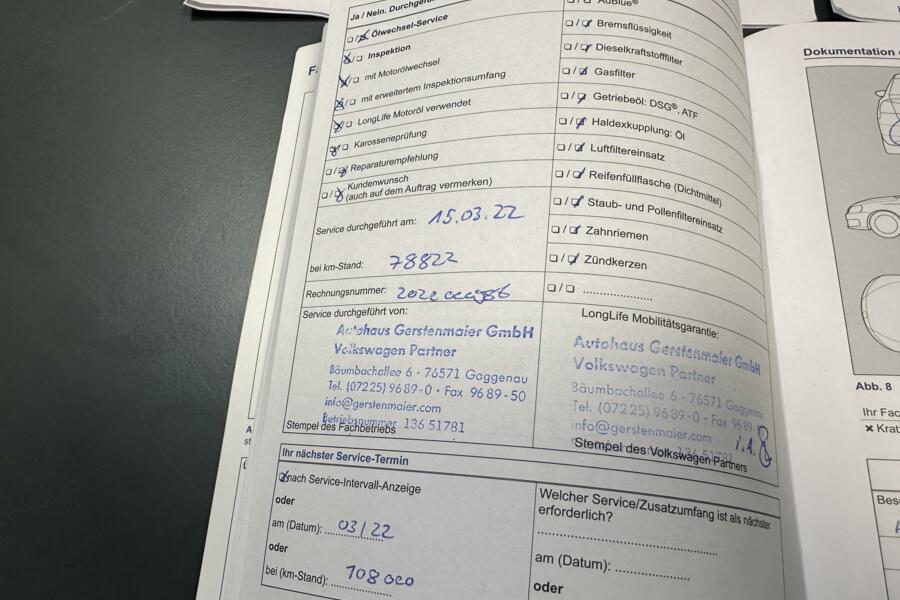 Ja / Nein. Durchgef
Ölwechsel-Service
Inspektion
mit Motorölwechsel
mit erweitertem Inspektionsumfang
LongLife Motoröl verwendet
Karosserieprüfung
Reparaturempfehlung
Kundenwunsch
(auch auf dem Auftrag vermerken)
Service durchgeführt am: 15.03.22
bei km-Stand: 78822
Rechnungsnummer:
Service durchgeführt von:
Autohaus Gerstenmaier GmbH
Volkswagen Partner
Bäumbachallee 6 · 76571 Gaggenau
Tel. (07225) 96 89-0 · Fax 96 89-50
info@gerstenmaier.com
Betriebsnummer 136 51781
Stempel des Fachbetriebs
AdBlue®
Bremsflüssigkeit
Dieselkraftstofffilter
Gasfilter
Getriebeöl: DSG®, ATF
Haldexkupplung: Öl
Luftfiltereinsatz
Reifenfüllflasche (Dichtmittel)
Staub- und Pollenfiltereinsatz
Zahnriemen
Zündkerzen
LongLife Mobilitätsgarantie:
Autohaus Gerstenmaier GmbH
Volkswagen Partner
Bäumbachallee 6 · 76571 Gaggenau
Tel. (07225) 96 89-0 · Fax 96 89-
info@gerstenmaier.com
i.A.
Stempel des Volkswagen Partners
Ihr nächster Service-Termin
nach Service-Intervall-Anzeige
oder
am (Datum): 03/22
oder
bei (km-Stand): 108000
Welcher Service/Zusatzumfang ist als nächster
erforderlich?
am (Datum):
oder
Dokumentation
Abb. 8
Ihr Fac
× Krat
Bes